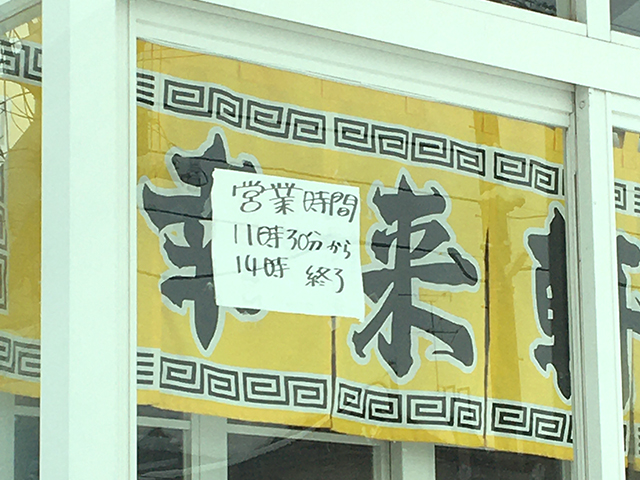 幸来
営業時間
11時30分から
14時 終了